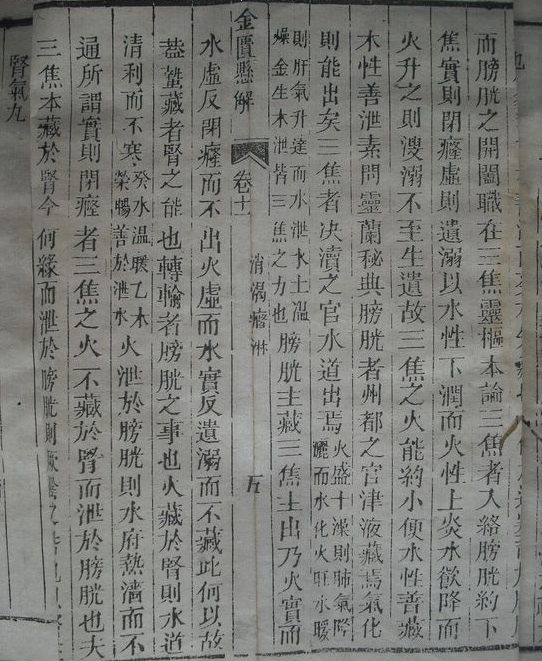 而膀胱之開闔職在三焦靈樞本論三焦者入絡膀胱約下
焦實則閉癃虛則遺溺以水性下潤而火性上炎水欲降而
火升之則溲溺不至生遺故三焦之火能約小便水性善藏
木性善泄素問靈蘭秘典膀胱者州都之官津液藏焉氣化
則能出矣三焦者決瀆之官水道出焉
火盛土燥則肺氣降
灑而水化火旺水暖
則肝氣升達而水泄水土溫
燥金生木泄皆三焦之力也
膀胱主藏三焦主出乃火實而
金匱懸解
卷十一
消渴癃淋
五
水虛反閉癃而不出火虛而水實反遺溺而不藏此何以故
蓋蟄藏者腎之能也轉輸者膀胱之事也火藏於腎則水道
清利而不寒
癸水溫暖乙木
榮暢善於泄水
火泄於膀胱則水府熱濇而不
遍所謂實則閉癃者三焦之火不藏於腎而泄於膀胱也夫
三焦本藏於腎今何緣而泄於膀胱則
腎氣九